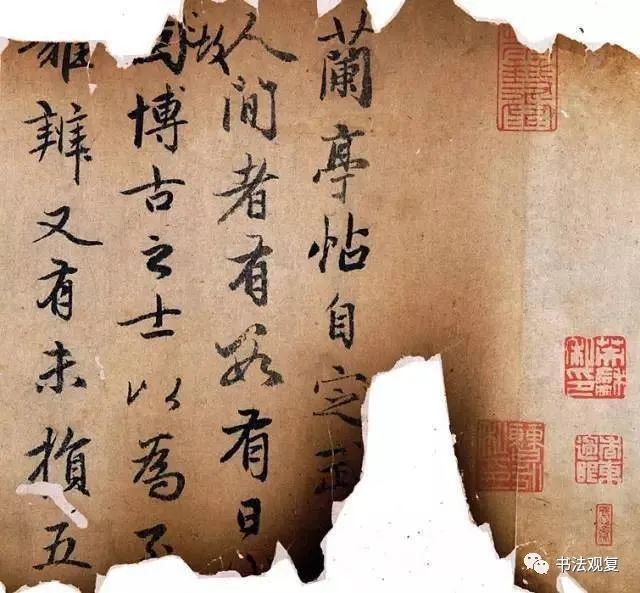 蘭亭帖自定武
人間者有數有日
故
博古之士以為
難辨又有未損五
书法观复